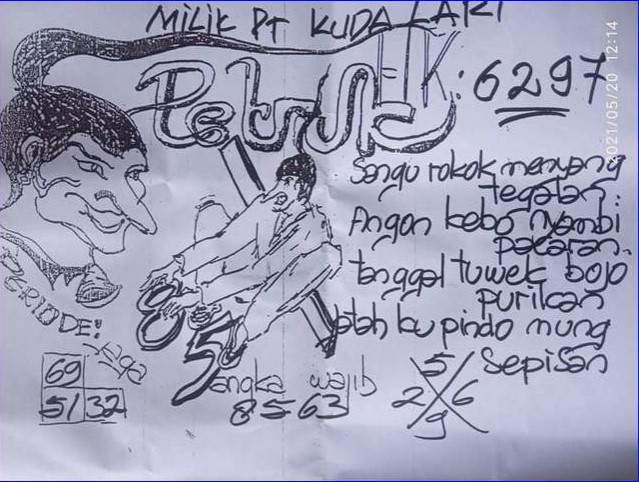 MILIK PT KUDA LARI
Petruk
HK: 6297
Sangu rokok menyang
tegalan.
Angon kebo nyambi
pacaran.
tanggal tuwek bojo
purikan
Jatah ku pindo mung
Sepisan
PERIODE:
Jaga
69
51 32
85
angka wajib
8563
5
2 6
9
2021/05/20 12:14